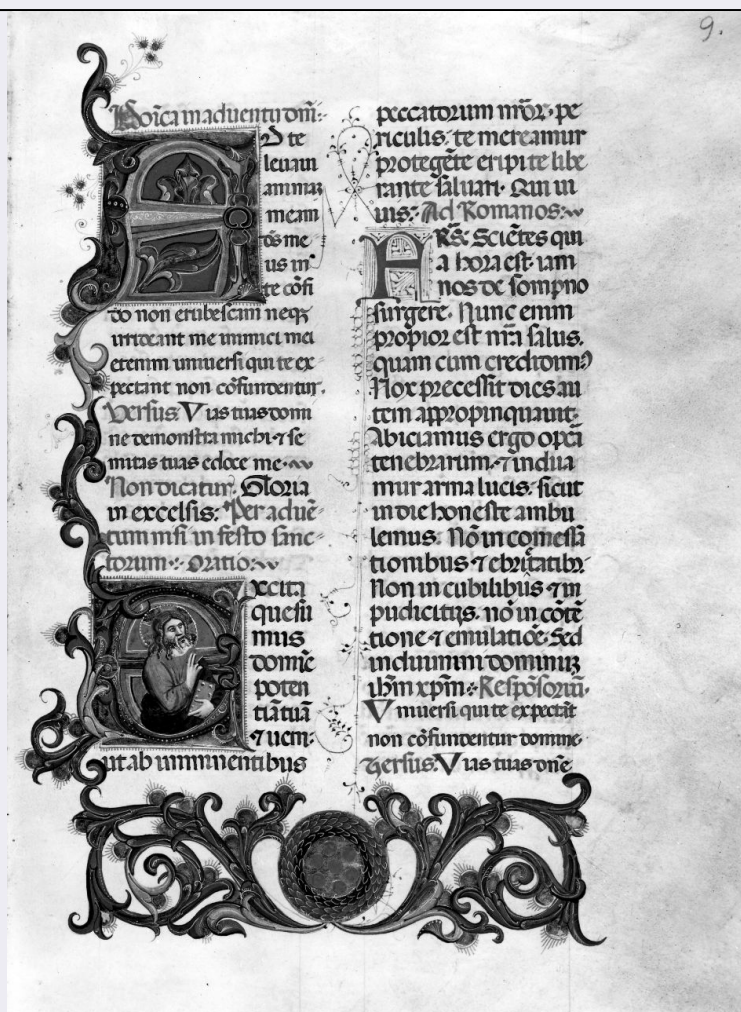 9.
Dñica in adventu dom̄.
AD te
levavi
animaʒ
meam
dēs me
us in
te cōfi
do non erubescam neqʒ
irrideant me inimici mei
etenim universi qui te ex
pectant non cōfundentur.
Versus. Vias tuas domi
ne demonstra michi ⁊ se
mitas tuas edoce me.
Non dicatur. Gloria
in excelsis. Per advē
tum nisi in festo sanc
torum. Oratio.
Excita
quesu
mus
domīe
poten
tiā tuā
⁊ veni.
ut ab imminentibus
peccatorum nr̄or̄. pe
riculis. te mereamur
protegēte eripi te libe
rante salvari. Qui vi
vis. Ad Romanos.
FRēs. Sciētes qui
a hora est. iam
nos de sompno
surgere. Nunc enim
propior est nr̄a salus.
quam cum credidim9
Nox precessit dies au
tem appropinquavit.
Abiciamus ergo opēa
tenebrarum. ⁊ indua
mur arma lucis. sicut
in die honeste ambu
lemus. Nō in comessa
tionibus ⁊ ebrietatibʒ.
Non in cubilibus ⁊ in
pudicitijs. nō in cōtē
tione ⁊ emulatiōe. Sed
induimini dominuʒ
ihm̄ xpm̄. Respōsoriū.
Universi qui te expectāt
non cōfundentur domine.
Versus. Vias tuas dn̄e